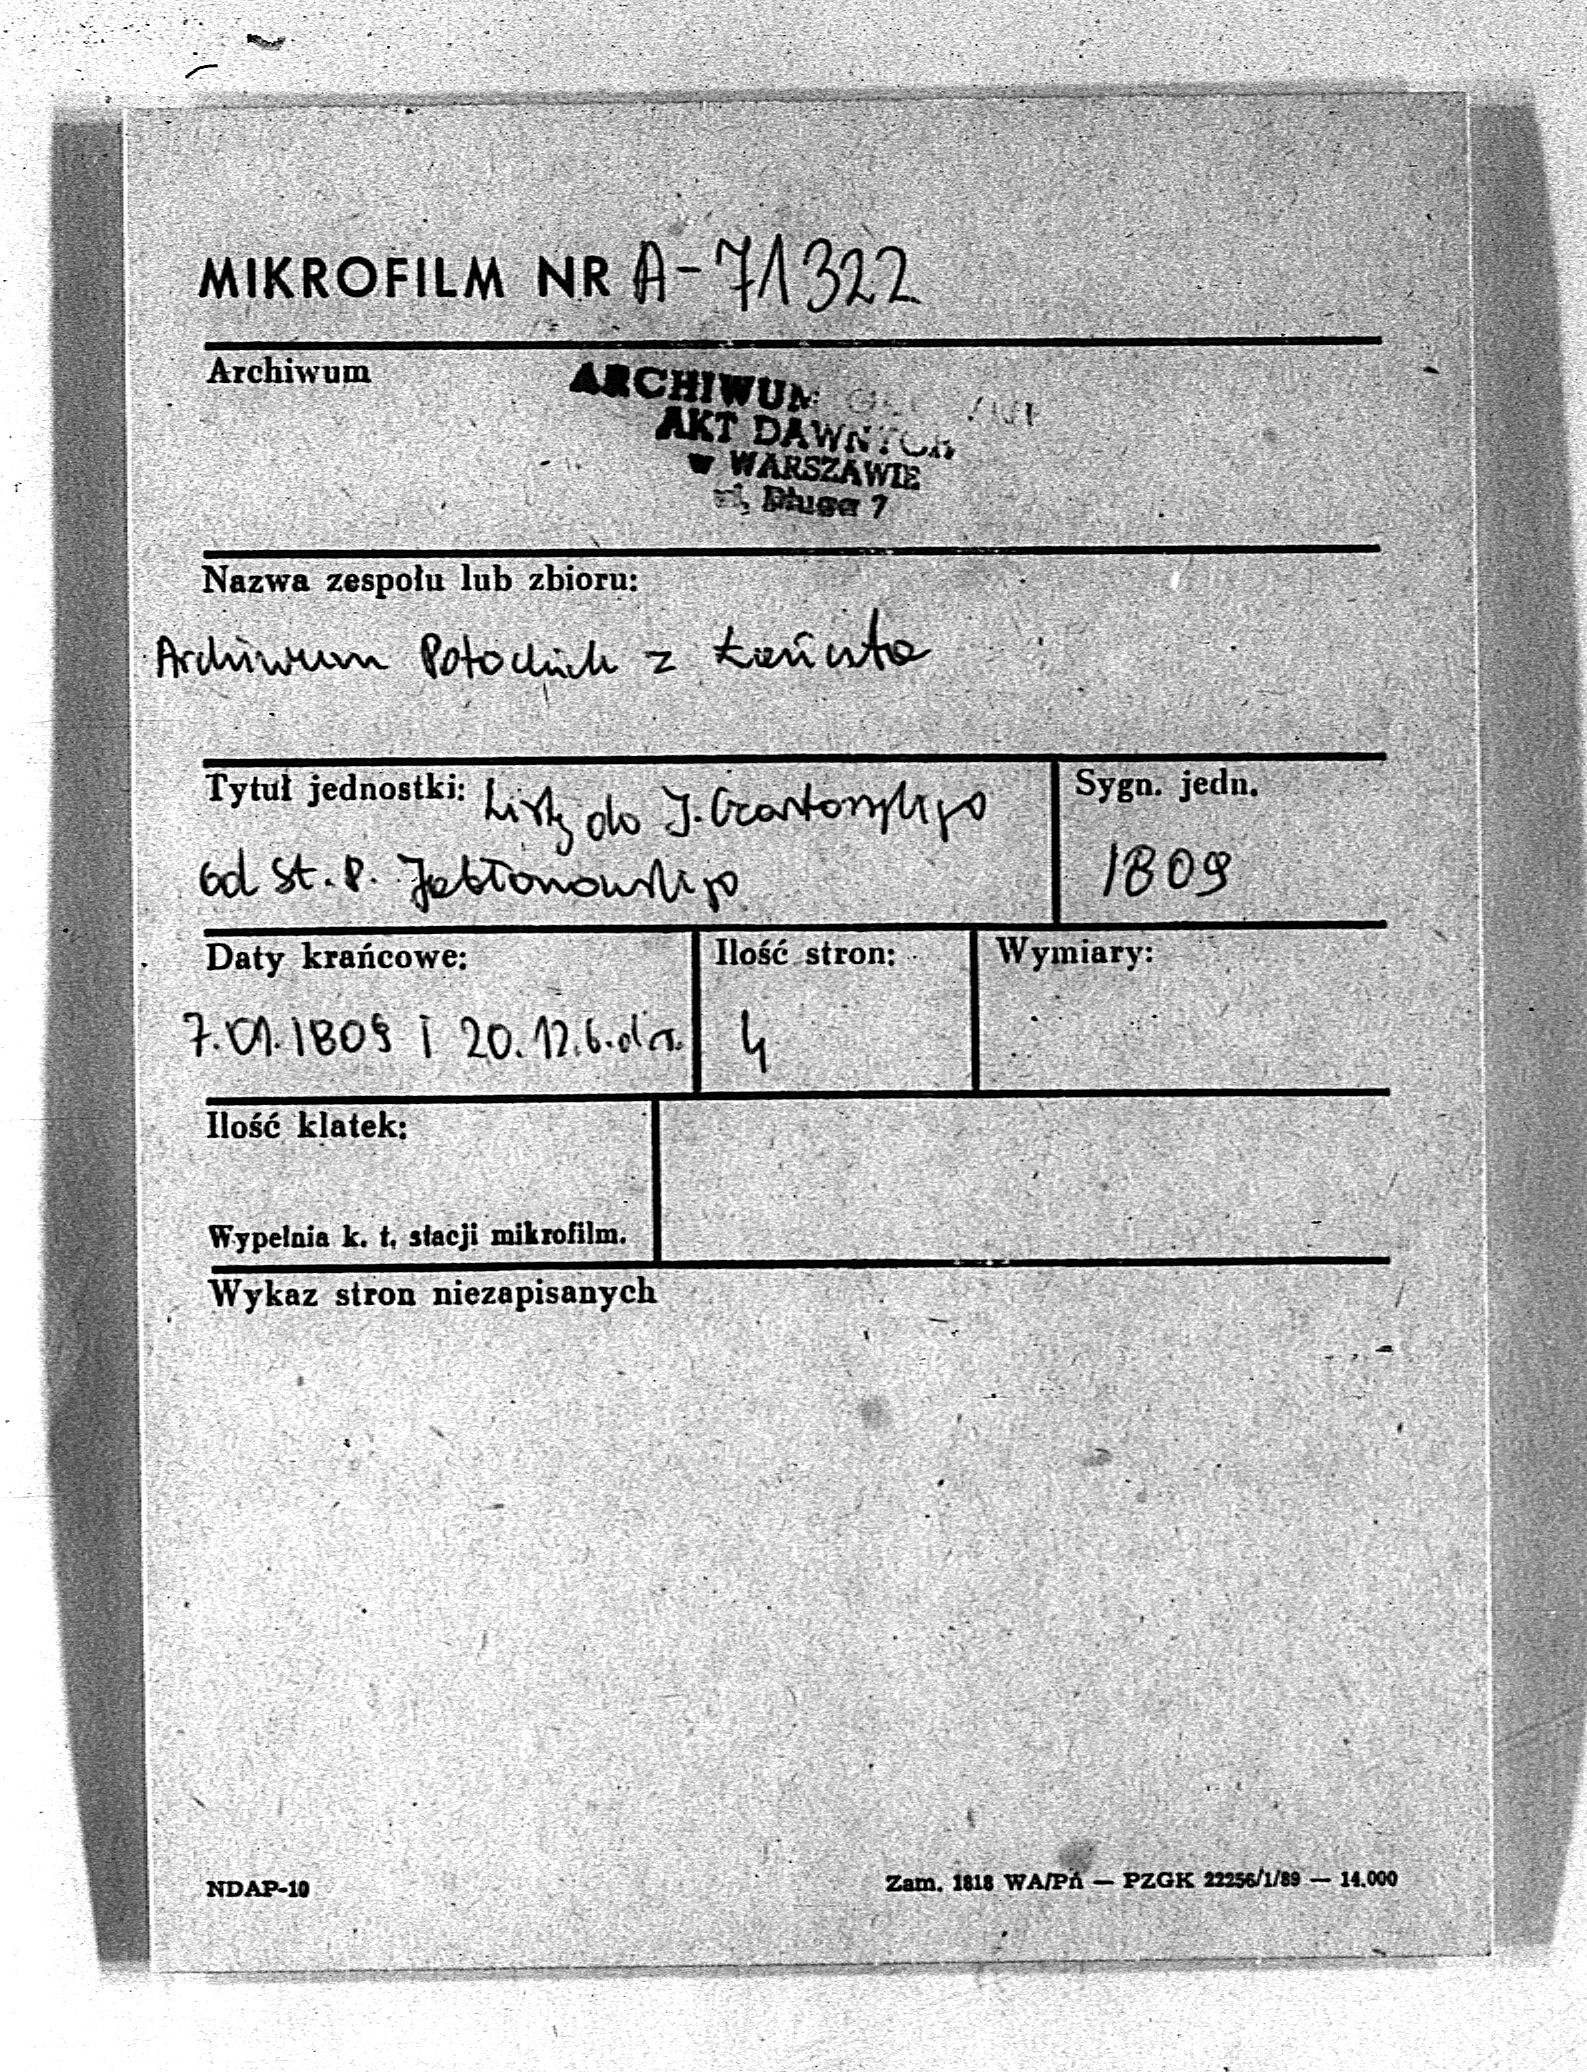 MIKROFILM NR A-71322
Archiwum
ARCHIWUM
AKT DAWNYCH
w WARSZAWIE
ul. Długa 7
Nazwa zespołu lub zbioru:
Archiwum Potockich z Łańcuta
Tytuł jednostki: Listy do J. Czartoryskiego
od St. P. Jabłonowskiego
Sygn. jedn.
1809
Daty krańcowe:
7.01.1809 i 20.12.b.d.r.
Ilość stron:
4
Wymiary:
Ilość klatek:
Wypełnia k. t. stacji mikrofilm.
Wykaz stron niezapisanych
NDAP-10
Zam. 1818 WA/Pń — PZGK 22256/1/89 — 14.000